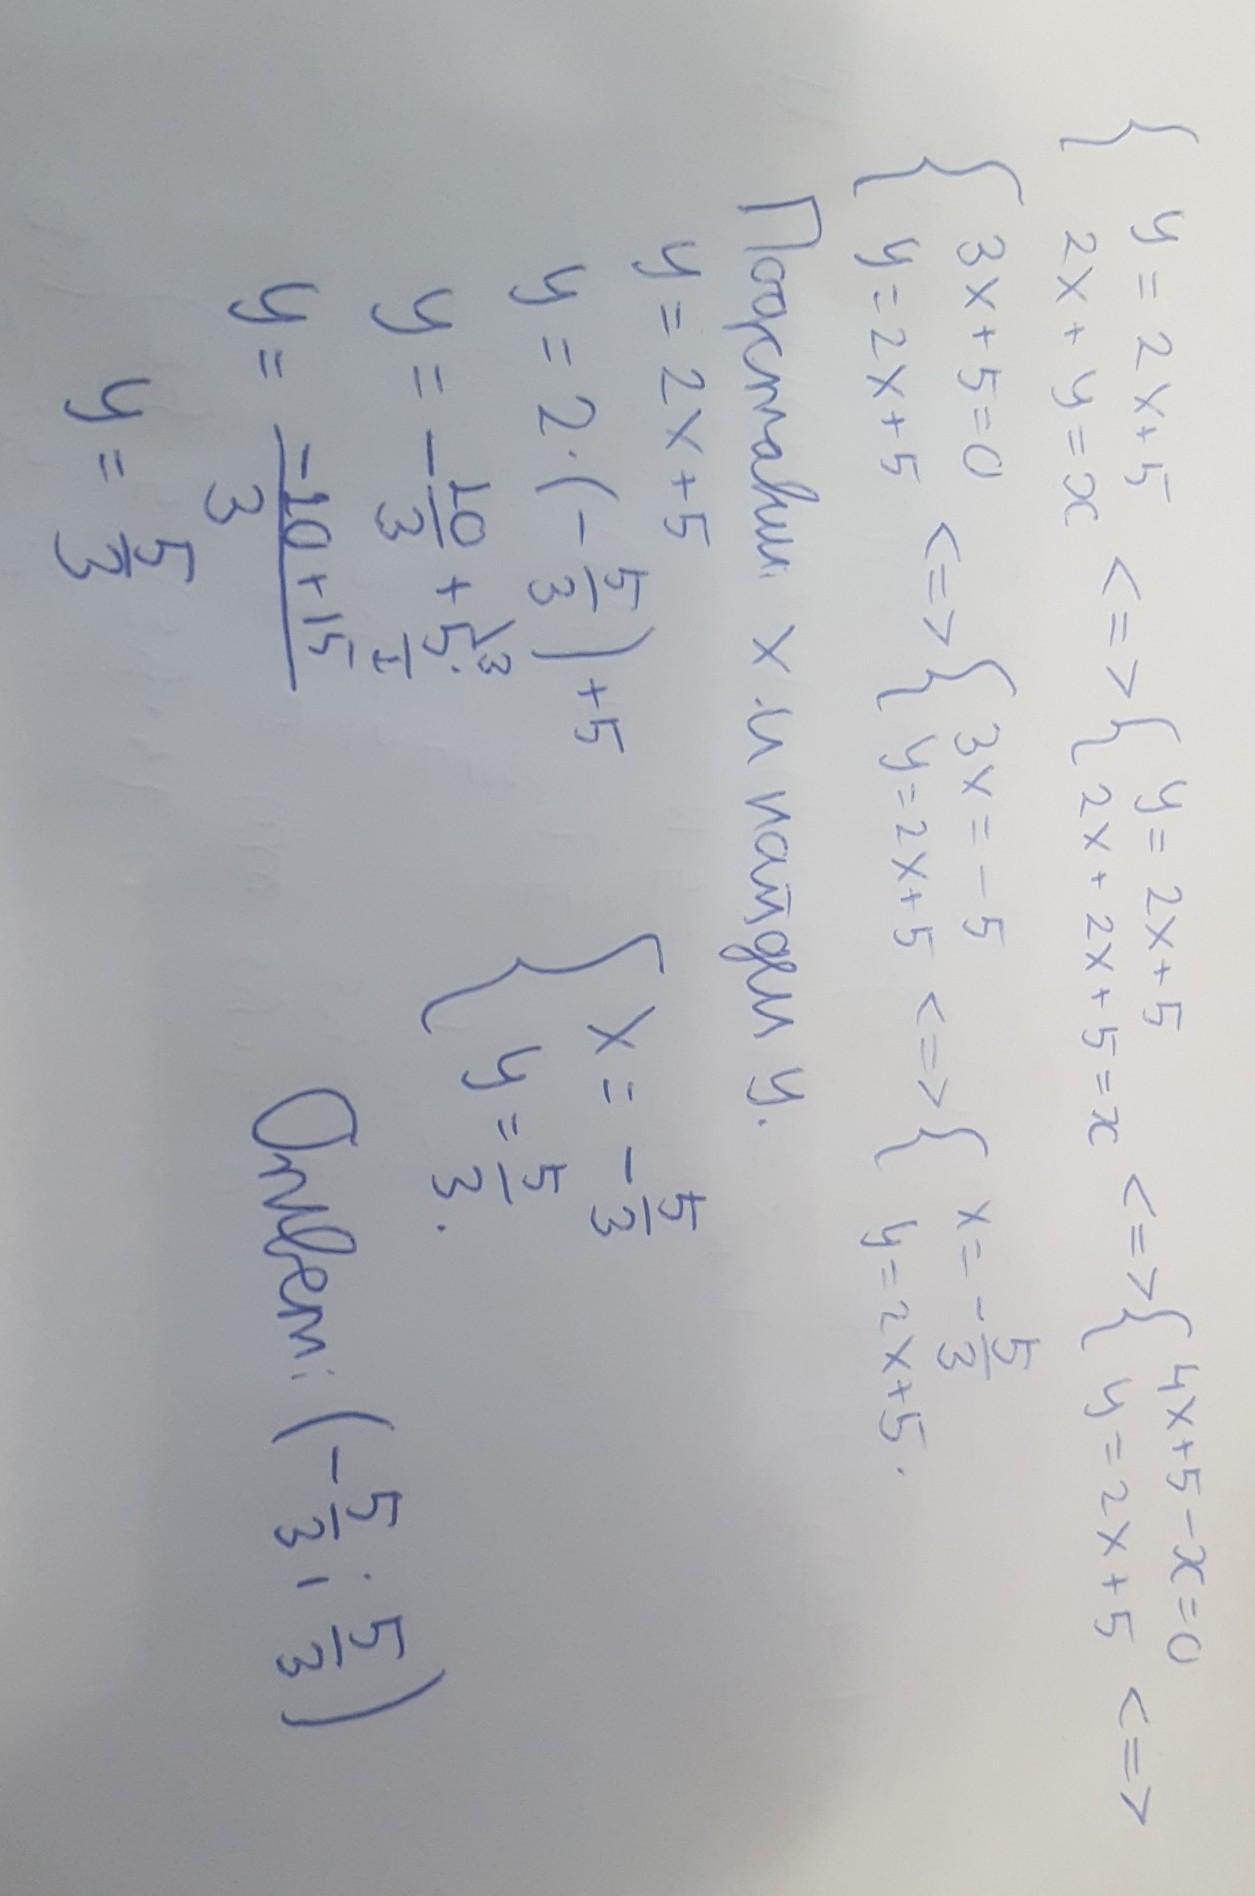 { y = 2x+5 <=> { y = 2x+5 <=> { 4x+5-x=0 <=>
2x+y=x 2x+2x+5=x y=2x+5
{ 3x+5=0 <=> { 3x=-5 <=> { x=-5/3
y=2x+5 y=2x+5 y=2x+5.
Подставим x и найдем y.
y = 2x+5
y = 2·(-5/3)+5
y = -10/3 + 5/1 \3
y = -10+15/3
y = 5/3
{ x = -5/3
y = 5/3.
Ответ: (-5/3; 5/3)